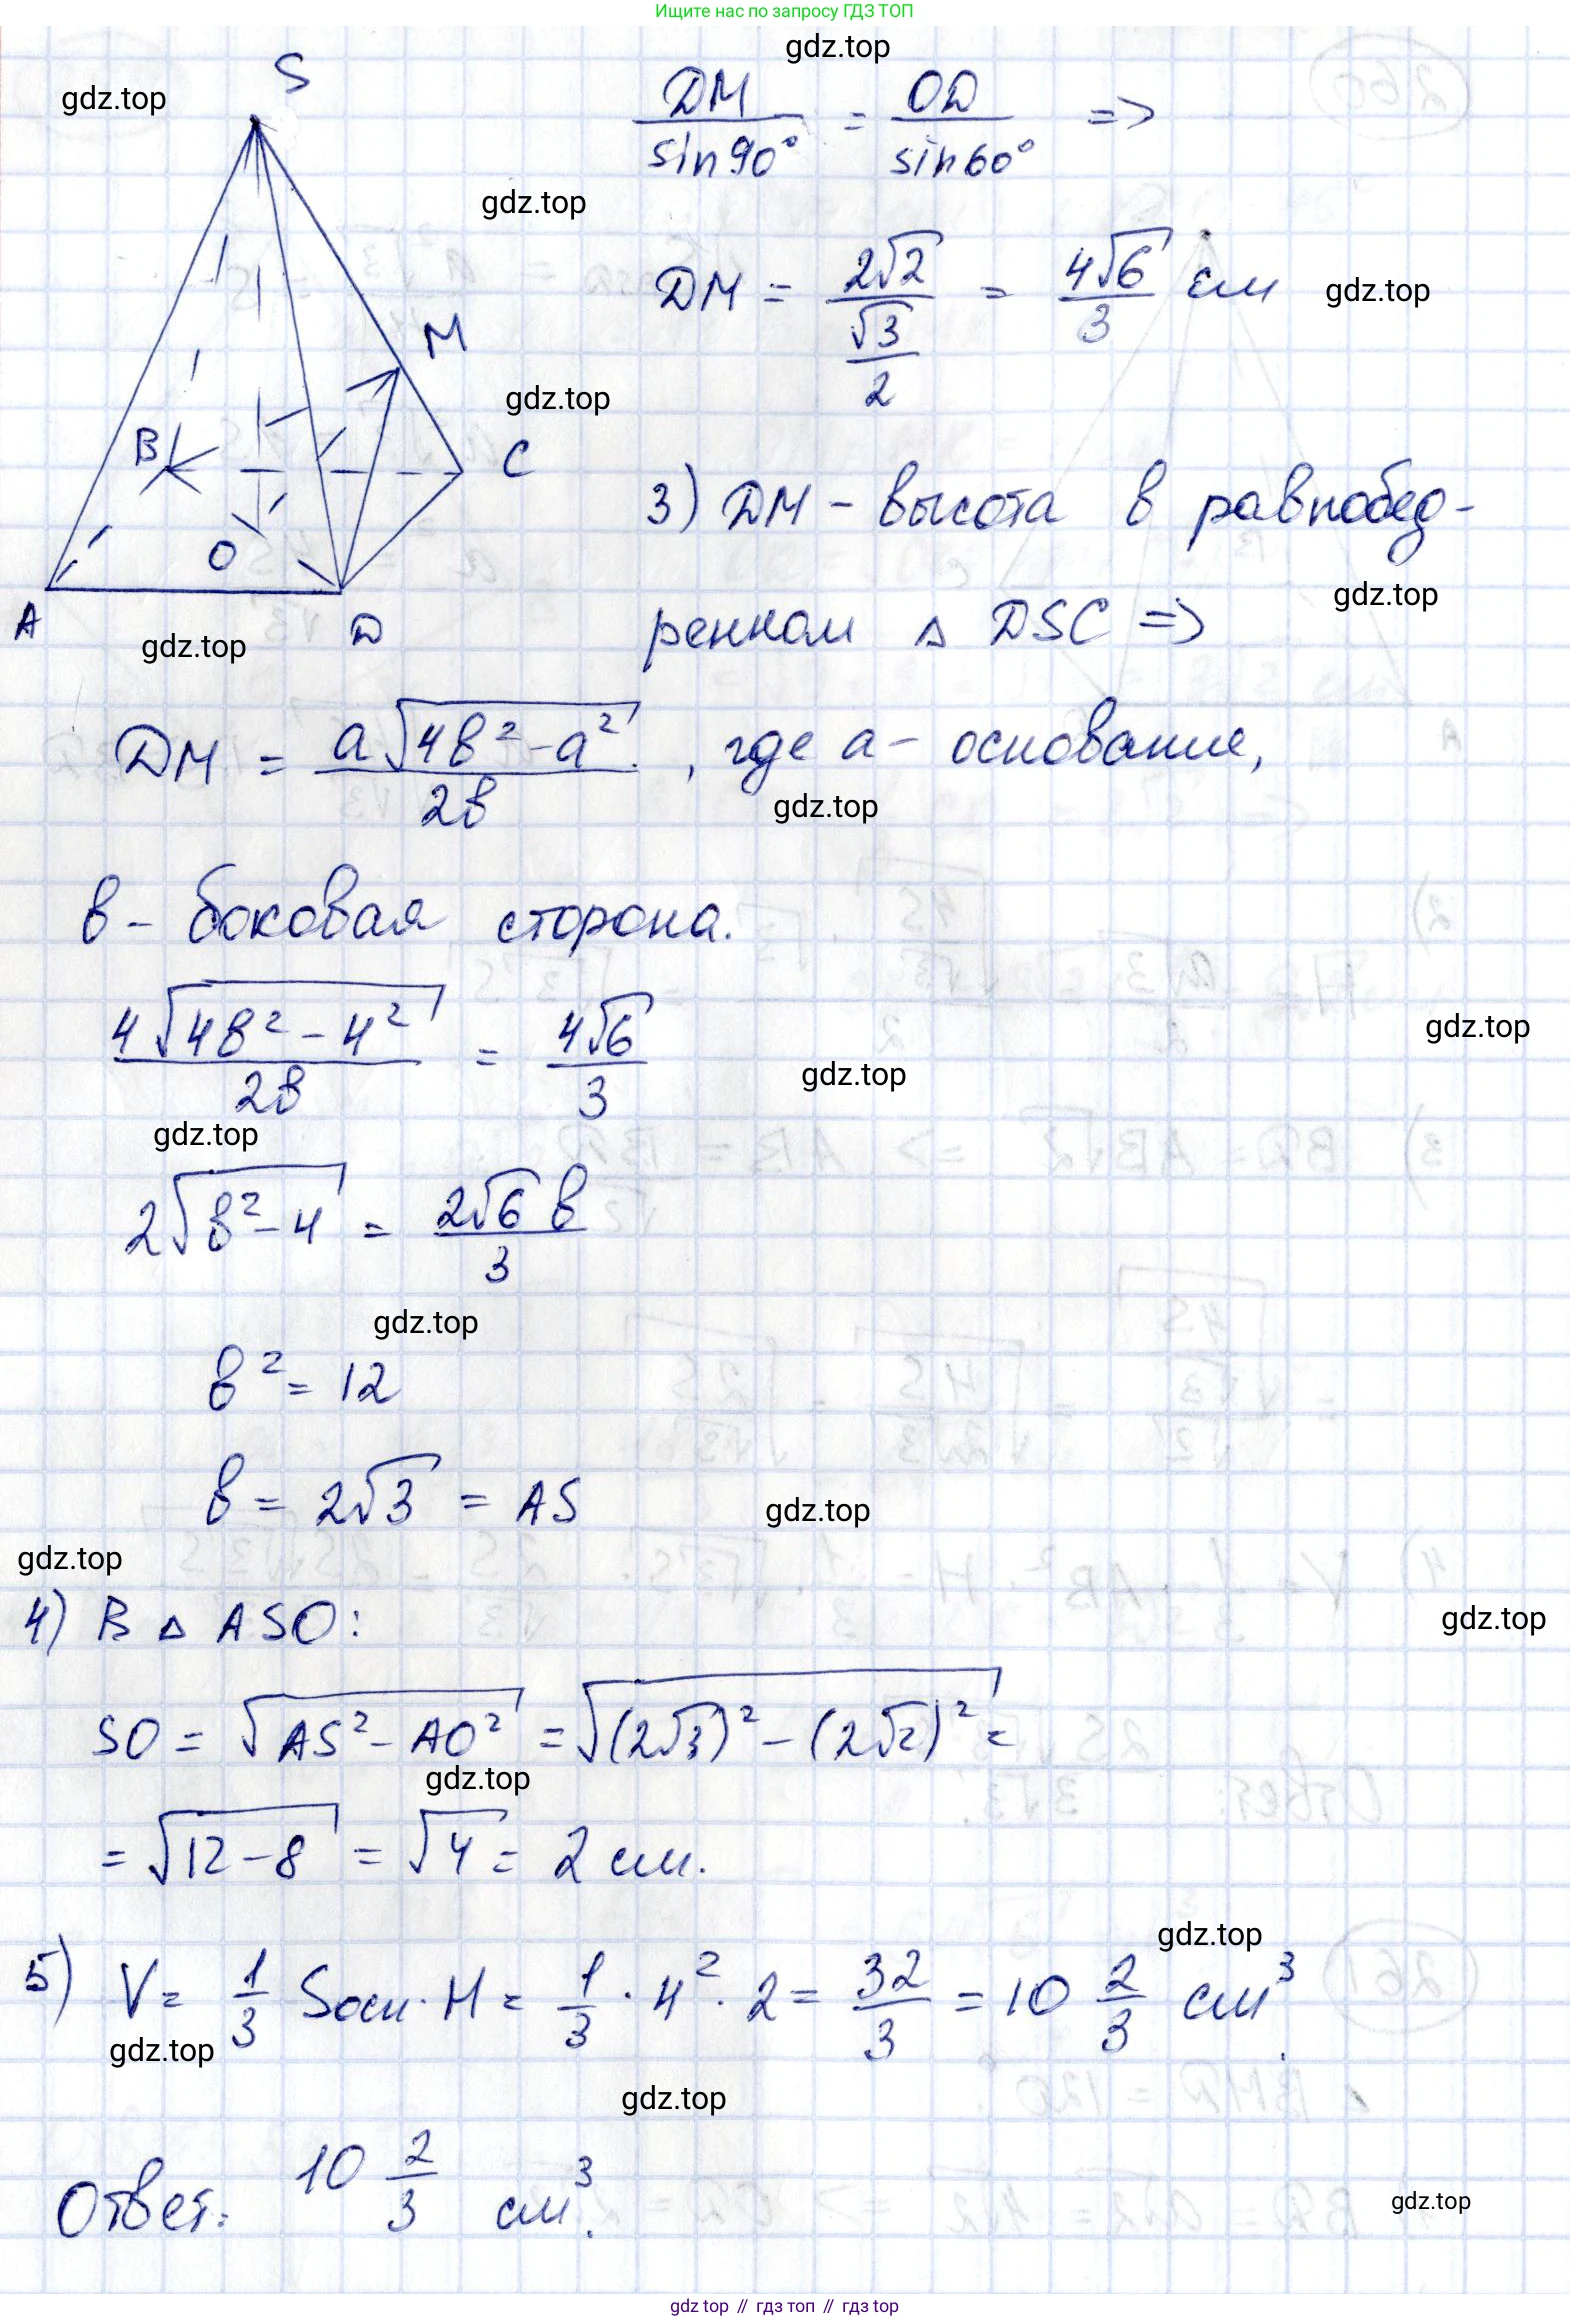 Ищите нас по запросу ГДЗ ТОП
gdz.top
S
gdz.top
DM/sin90° = OD/sin60° =>
gdz.top
DM = 2√2/(√3/2) = 4√6/3 см
gdz.top
M
gdz.top
B
C
3) DM - высота в равнобед-
O
gdz.top
A
D
gdz.top
ренном △ DSC =>
DM = a√(4в² - a²)/2в, где a - основание,
gdz.top
в - боковая сторона.
4√(4в² - 4²)/2в = 4√6/3
gdz.top
gdz.top
gdz.top
2√(в² - 4) = 2√6 в/3
gdz.top
в² = 12
в = 2√3 = AS
gdz.top
gdz.top
4) В △ ASO:
gdz.top
SO = √(AS² - AO²) = √((2√3)² - (2√2)²) =
gdz.top
= √(12 - 8) = √4 = 2 см.
gdz.top
5) V = 1/3 Sосн · H = 1/3 · 4² · 2 = 32/3 = 10 2/3 см³.
gdz.top
gdz.top
Ответ: 10 2/3 см³.
gdz.top
gdz.top // гдз топ // гдз top